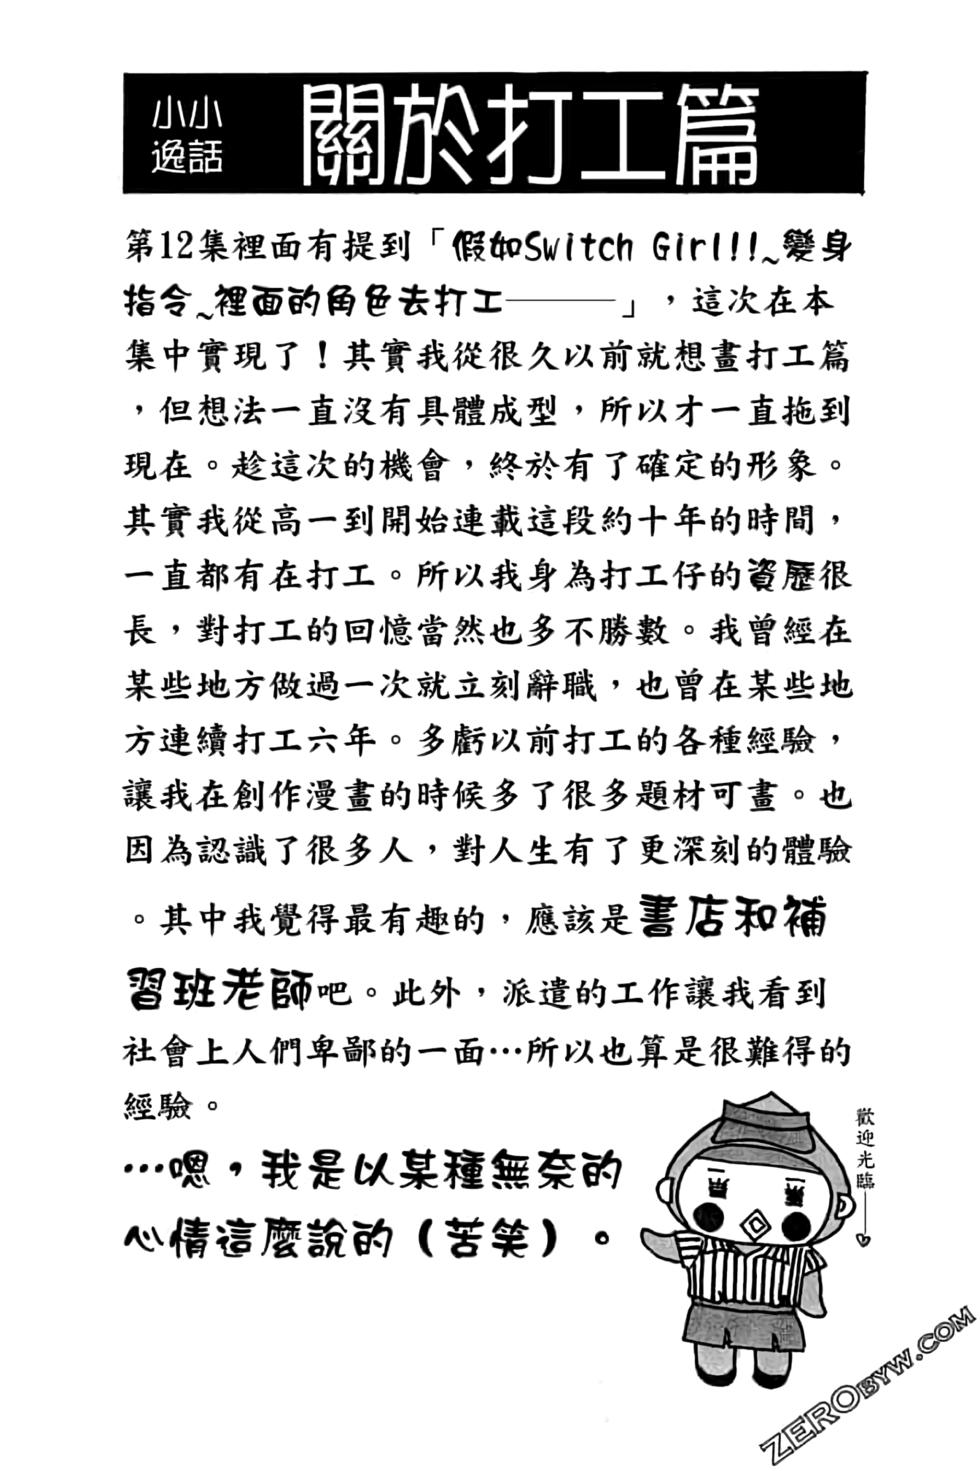 小小
逸話
關於打工篇
第12集裡面有提到「假如Switch Girl!!~變身
指令~裡面的角色去打工———」，這次在本
集中實現了！其實我從很久以前就想畫打工篇
，但想法一直沒有具體成型，所以才一直拖到
現在。趁這次的機會，終於有了確定的形象。
其實我從高一到開始連載這段約十年的時間，
一直都有在打工。所以我身為打工仔的資歷很
長，對打工的回憶當然也多不勝數。我曾經在
某些地方做過一次就立刻辭職，也曾在某些地
方連續打工六年。多虧以前打工的各種經驗，
讓我在創作漫畫的時候多了很多題材可畫。也
因為認識了很多人，對人生有了更深刻的體驗
。其中我覺得最有趣的，應該是書店和補
習班老師吧。此外，派遣的工作讓我看到
社會上人們卑鄙的一面…所以也算是很難得的
經驗。
…嗯，我是以某種無奈的
心情這麼說的（苦笑）。
歡迎光臨——♡
ZEROBYW.COM